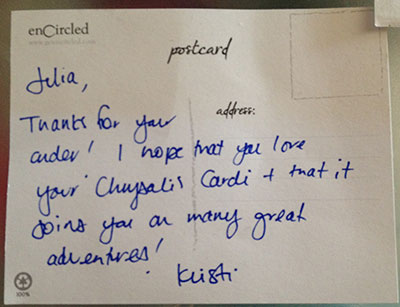 enCircled
www.getencircled.com
postcard
Julia,
address:
Thanks for your
order! I hope that you love
your Chrysalis Cardi + that it
joins you on many great
adventures!
Kristi
100%